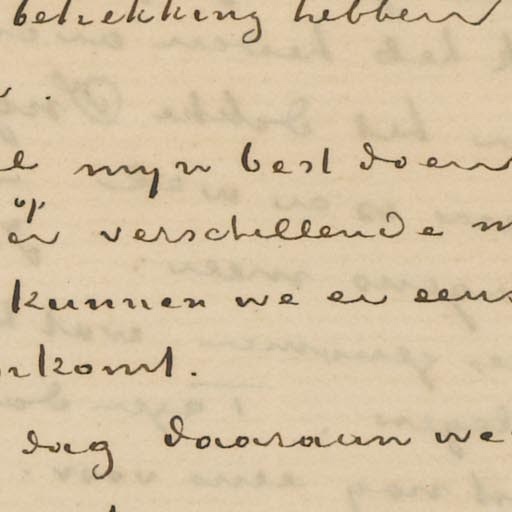 betrekking hebben
myn best doen
op
verschillende
kunnen we er eens
rkomt.
dag daaraan we